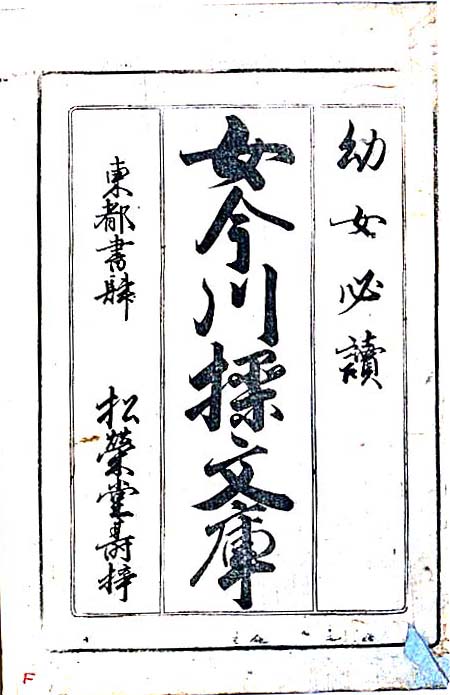 幼女必讀
女今川操文庫
東都書肆 松榮堂壽梓
F